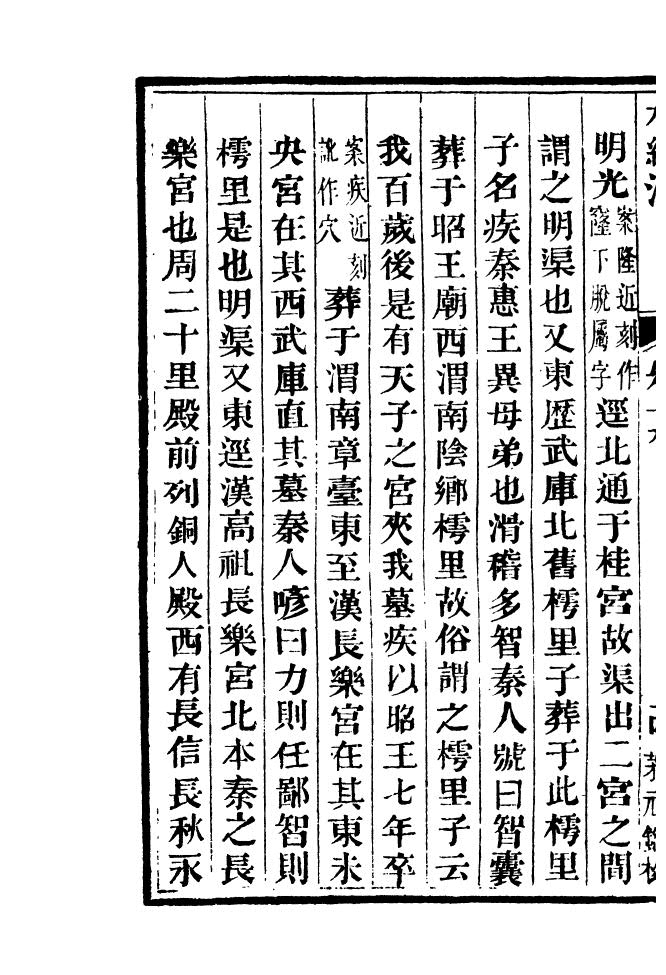 明光案隆近刻作窿下脫屬字逕北通于桂宮故渠出二宮之間
謂之明渠也又東歷武庫北舊樗里子葬于此樗里
子名疾秦惠王異母弟也滑稽多智秦人號曰智囊
葬于昭王廟西渭南陰鄉樗里故俗謂之樗里子云
我百歲後是有天子之宮夾我墓疾以昭王七年卒
案疾近刻訛作穴葬于渭南章臺東至漢長樂宮在其東未
央宮在其西武庫直其墓秦人喭曰力則任鄙智則
樗里是也明渠又東逕漢高祖長樂宮北本秦之長
樂宮也周二十里殿前列銅人殿西有長信長秋永